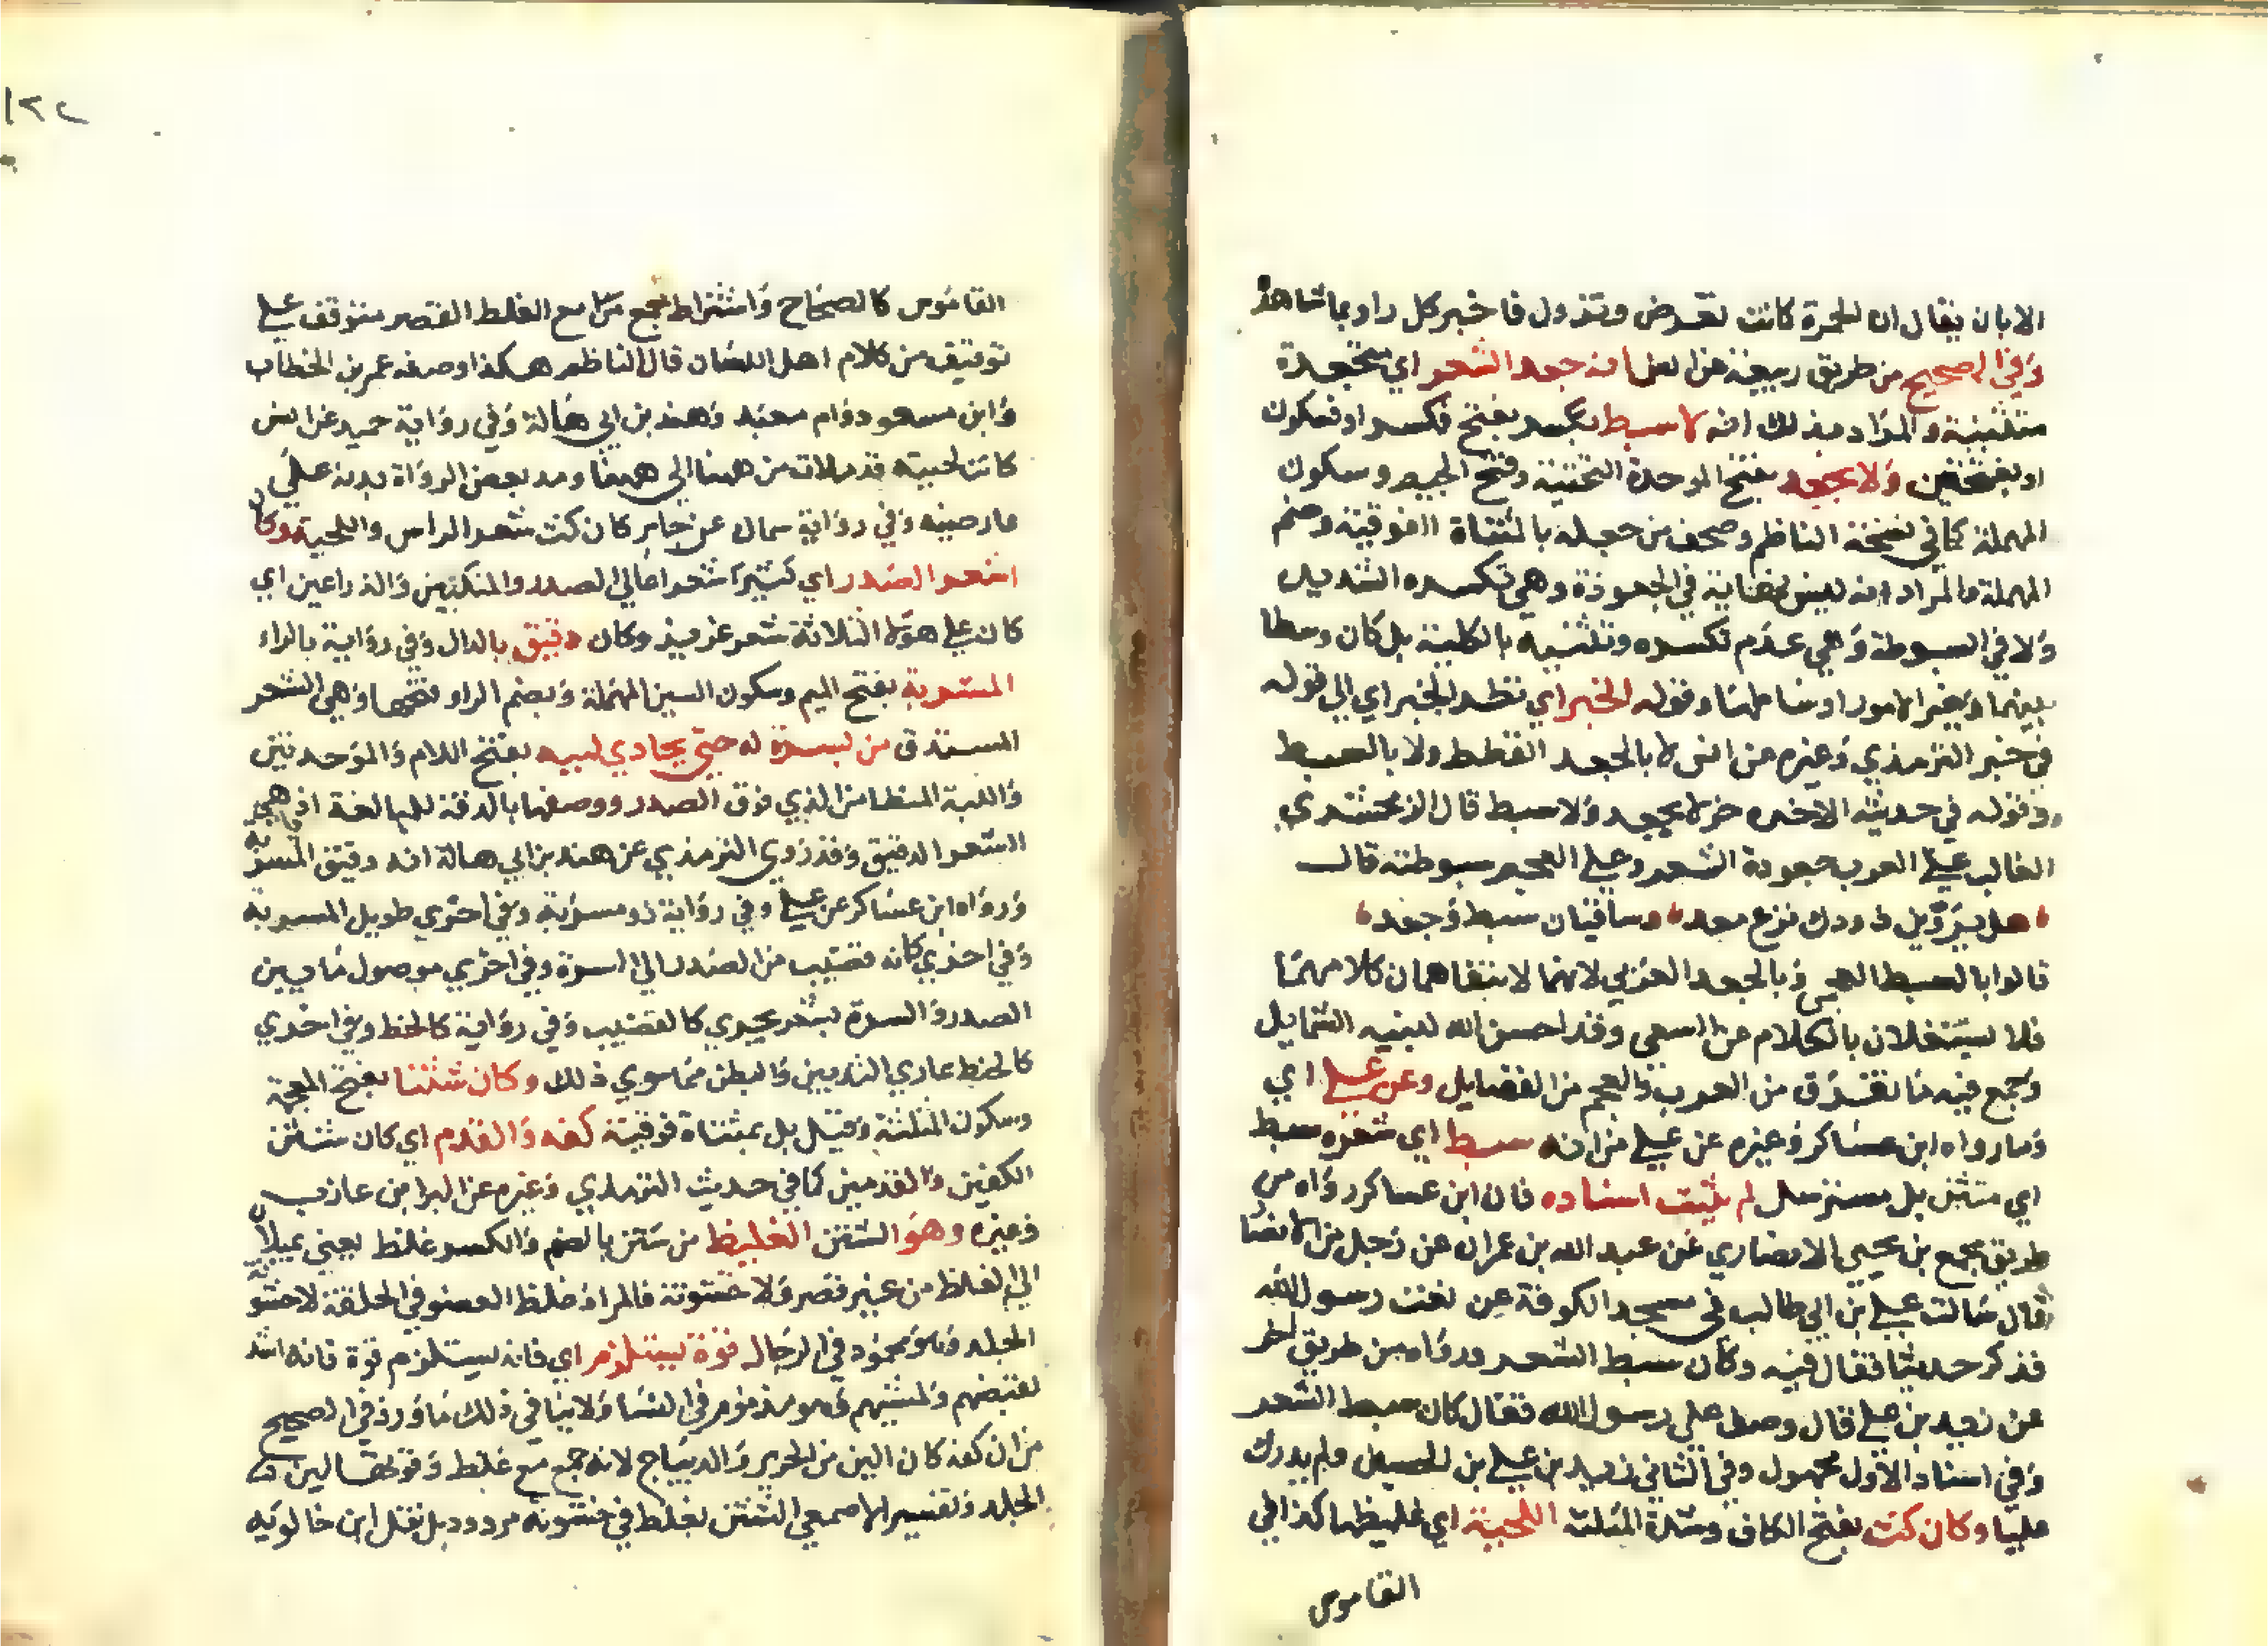 الا بان يقال ان الحمرة كانت تعرض وتزول فاخبر كل راو بما شاهد
وفي الصحيح من طريق ربيعة عن انس انه جعد الشعر اي متجعدة
متثنية والمراد مذلك انه لا سبط بكسر بفتح فكسر او فسكون
او بفتحتين ولا بجعد بفتح الموحدة التحتية وفتح الجيم وسكون
المهملة كما في نسخة الناظم وصحف من جعله بالمثناة الفوقية وضم
المهملة والمراد انه ليس نهاية في الجعودة وهي تكسره الشديد
ولا في السبوطة وهي عدم تكسره وتثنيه بالكلية بل كان وسطا
بينهما وخير الامور اوساطها وقوله الخبر اي نظر الخبر اي الى قوله
في خبر الترمذي وغيره عن انس لا بالجعد القطط ولا بالسبط
وقوله في حديثه الاخر لا بجعد ولا سبط قال الزمخشري
الغالب على العرب جعودة الشعر وعلى العجم سبوطته قال
هل يروين ذودك نزع معد وساقيان سبط وجعد
قالوا بالسبط العجمي وبالجعد العربي لانهما لا يتفاهمان كلامهما
فلا يشتغلان بالكلام عن السعي وقد احسن الله لنبيه الشمايل
وجمع فيه ما تفرق من العرب والعجم من الفضايل وعن علي اي
وما رواه ابن عساكر وغيره عن علي من انه سبط اي شعره سبط
اي متثن بل مسترسل لم يثبت اسناده فان ابن عساكر رواه من
طريق مجمع بن يحيى الانصاري عن عبد الله بن عمران عن رجل من الانصا
قال سالت علي بن ابي طالب في مسجد الكوفة عن نعت رسول الله
فذكر حديثا فقال فيه وكان سبط الشعر ورواه من طريق اخر
عن زيد بن علي قال وصف علي رسول الله فقال كان سبط الشعر
وفي اسناد الاول مجهول وفي الثاني زيد بن علي بن الحسين ولم يدرك
عليا وكان كث بفتح الكاف وشدة المثلثة اللحية اي غليظها كذا في
القاموس
١٢٢
القاموس كالصحاح واشتراط جمع مع الغلظ القصر متوقف على
توقيف من كلام اهل اللسان قال الناظم هكذا وصفه عمر بن الخطاب
وابن مسعود وام معبد وهند بن ابي هالة وفي رواية حميد عن انس
كانت لحيته قد ملات من ههنا الى ههنا ومد بعض الرواة يديه على
عارضيه وفي رواية سماك عن جابر كان كث شعر الراس واللحية وكان
اشعر الصدر اي كثير شعر اعالي الصدر والمنكبين والذراعين اي
كان على هولا الثلاثة شعر غزير وكان دقيق بالدال وفي رواية بالراء
المسربة بفتح الميم وسكون السين المهملة وبضم الراء وفتحها وهي الشعر
المستدق من لسرة له حتى يحاذي لببه بفتح اللام والموحدتين
واللبة المنظامن الذي فوق الصدر ووصفها بالدقة للمبالغة اذ هي
الشعر الدقيق وقد روى الترمذي عن هند بن ابي هالة انه دقيق المسربة
ورواه ابن عساكر عن علي وفي رواية ذو مسربة وفي اخرى طويل المسربة
وفي اخرى كانه قضيب من الصدر الى السرة وفي اخرى موصول ما بين
الصدر والسرة بشعر يجري كالقضيب وفي رواية كالخط وفي اخرى
كالخط عاري الثديين والبطن مما سوى ذلك وكان شثنا بفتح المعجمة
وسكون المثلثة وقيل بل بمثناة فوقية كفه والقدم اي كان شثن
الكفين والقدمين كما في حديث الترمذي وغيره عن البرا بن عازب
وغيره وهو الشثن الغليظ من شثن بالضم والكسر غلظ يعني يميلان
الى الغلظ من غير قصر ولا خشونة فالمراد غلظ العضو في الخلقة لا خشونة
الجلد وهو محمود في الرجال قوة يستلزم اي فانه يستلزم قوة فانه اشد
لقبضهم ولمشيهم وهو مذموم في النسا ولا ينافي ذلك ما ورد في الصحيح
من ان كفه كان الين من الحرير والديباج لانه جمع مع غلظ وقوتها لين
الجلد وتفسير الاصمعي الشثن بغلظ في خشونة مردود بل نقل ابن خالويه